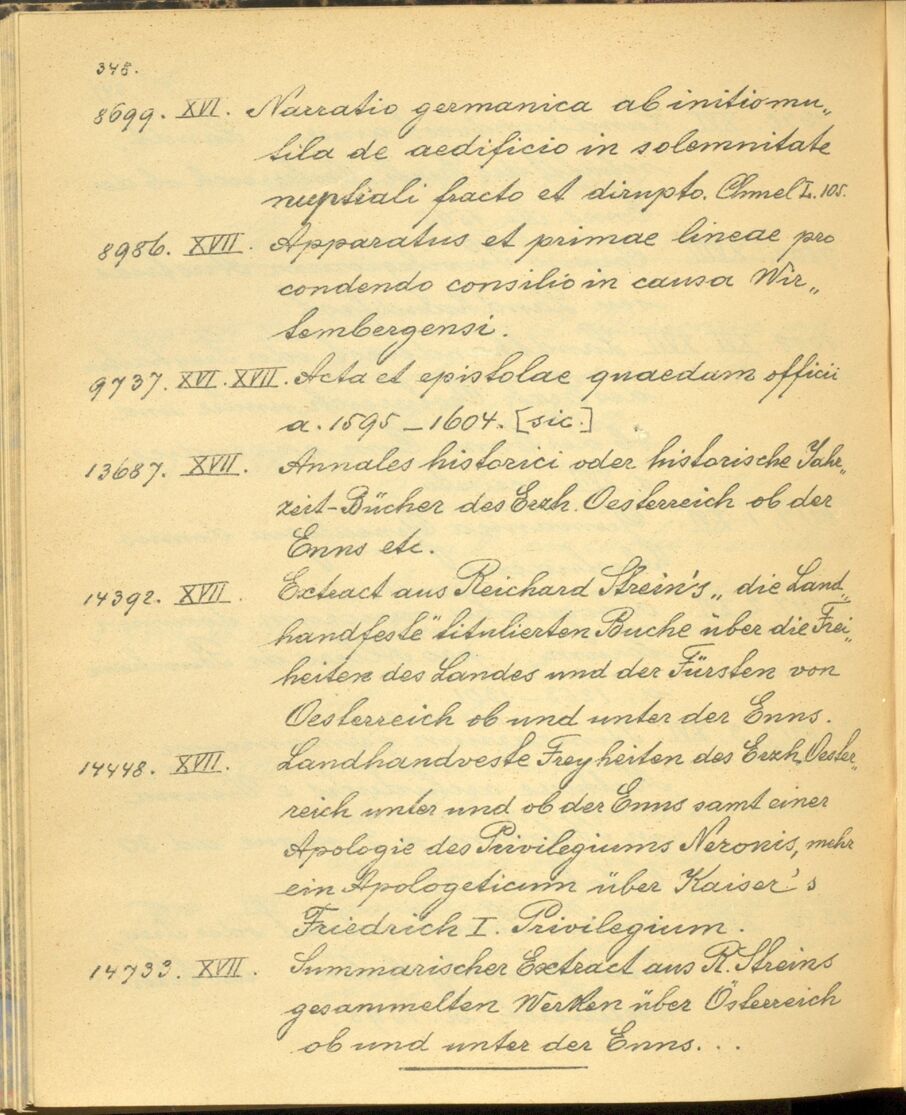 348.
8699. XVI. Narratio germanica ab initio mu„
tila de aedificio in solemnitate
nuptiali fracto et dirupto. Chmel I. 105.
8986. XVII. Apparatus et primae lineae pro
condendo consilio in causa Wir„
tembergensi.
9737. XVI. XVII. Acta et epistolae quaedam officii
a. 1595 – 1604. [sic.]
13687. XVII. Annales historici oder historische Jahr„
zeit-Bücher des Erzh. Oesterreich ob der
Enns etc.
14392. XVII. Extract aus Reichard Strein's „die Land„
handfeste" titulierten Buche über die Frei„
heiten des Landes und der Fürsten von
Oesterreich ob und unter der Enns.
14448. XVII. Landhandveste Freyheiten des Erzh. Oester„
reich unter und ob der Enns samt einer
Apologie des Privilegiums Neronis, mehr
ein Apologeticum über Kaiser's
Friedrich I. Privilegium.
14733. XVII. Summarischer Extract aus R. Streins
gesammelten Werken über Österreich
ob und unter der Enns. . .